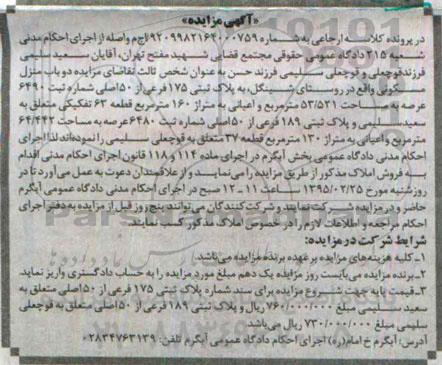 «آگهی مزایده»
در پرونده کلاسه ارجاعی به شماره ۹۲۰۹۹۸۲۱۶۴۰۰۰۷۵۹/اج م واصله از اجرای احکام مدنی
شعبه ۲۱۵ دادگاه عمومی حقوقی مجتمع قضایی شهید مفتح تهران، آقایان سعید سلیمی
فرزند قوچعلی و قوچعلی سلیمی فرزند حسن به عنوان شخص ثالث تقاضای مزایده دو باب منزل
مسکونی واقع در روستای شینگل، به پلاک ثبتی ۱۷۵ فرعی از ۵۰ اصلی شماره ثبت ۶۴۹۰
عرصه به مساحت ۵۳/۵۲۱ مترمربع و اعیانی به متراژ ۱۶۰ مترمربع قطعه ۶۳ تفکیکی متعلق به
سعید سلیمی و پلاک ثبتی ۱۸۹ فرعی از ۵۰ اصلی شماره ثبت ۶۴۸۰ عرصه به مساحت ۶۴/۴۴۲
مترمربع و اعیانی به متراژ ۱۳۰ مترمربع قطعه ۳۷ متعلق به قوچعلی سلیمی را نموده‌اند لذا اجرای
احکام مدنی دادگاه عمومی بخش آبگرم در اجرای ماده ۱۱۴ و ۱۱۸ قانون اجرای احکام مدنی اقدام
به فروش املاک مذکور از طریق مزایده را می‌نماید و از علاقمندان دعوت به عمل می‌آورد تا در
روز شنبه مورخ ۱۳۹۵/۰۲/۲۵ ساعت ۱۱ - ۱۲ صبح در اجرای احکام مدنی دادگاه عمومی آبگرم
حاضر و در مزایده شرکت نمایند و شرکت کنندگان می‌توانند پنج روز قبل از مزایده به دفتر اجرای
احکام مراجعه و اطلاعات لازم را در خصوص املاک مذکور کسب نمایند.
شرایط شرکت در مزایده:
۱- کلیه هزینه‌های مزایده بر عهده برنده مزایده می‌باشد.
۲- برنده مزایده می‌بایست روز مزایده یک دهم مبلغ مورد مزایده را به حساب دادگستری واریز نماید.
۳- قیمت پایه جهت شروع مزایده برای سند شماره پلاک ثبتی ۱۷۵ فرعی از ۵۰ اصلی متعلق به
سعید سلیمی مبلغ ۷۶۰/۰۰۰/۰۰۰ ریال و پلاک ثبتی ۱۸۹ فرعی از ۵۰ اصلی متعلق به قوچعلی
سلیمی مبلغ ۷۳۰/۰۰۰/۰۰۰ ریال می‌باشد.
آدرس: آبگرم خ امام(ره) اجرای احکام دادگاه عمومی آبگرم تلفن: ۰۲۸۳۴۷۶۳۱۳۹